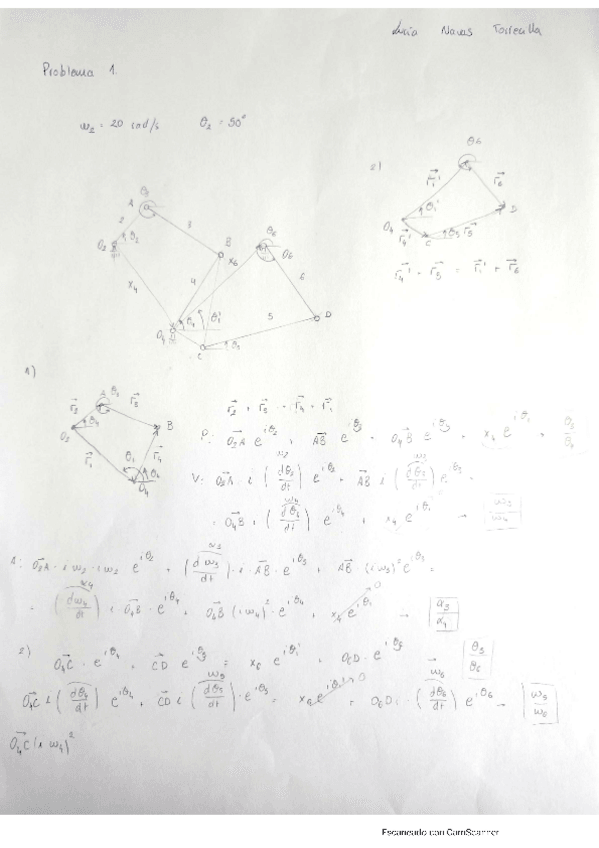 Lucía Navas Torrealla
Problema 1.
ω₂ = 20 rad/s θ₂ = 50°
2)
θ6
r₁'
r₆
O₄
θ₁'
D
r₄'
C
θ₅
r₅
r₄' + r₅ = r₁' + r₆
θ₃
A
2
3
O₂
θ₂
B
x₆
θ₆
O₆
4
6
x₄
θ₁'
O₄
5
D
C
θ₅
1)
r₂
A
θ₃
r₃
O₂
B
r₁
θ₁
θ₄
O₄
r₂ + r₃ = r₄ + r₁
P: O₂A e^iθ₂ + AB e^iθ₃ = O₄B e^iθ₄ + x₄ e^iθ₁ → θ₃ θ₄
V: O₂A · i (dθ₂/dt) ω₂ e^iθ₂ + AB i (dθ₃/dt) ω₃ e^iθ₃ =
= O₄B i (dθ₄/dt) ω₄ e^iθ₄ + x₄ e^iθ₁ → ω₃ ω₄
A: O₂A · i ω₂ · i ω₂ e^iθ₂ + (dω₃/dt) α₃ · i · AB · e^iθ₃ + AB · (i ω₃)² e^iθ₃ =
= (dω₄/dt) α₄ i · O₄B · e^iθ₄ + O₄B (i ω₄)² · e^iθ₄ + x₄ e^iθ₁ 0 → α₃ α₄
2) O₄C · e^iθ₄ + CD e^iθ₅ = x₆ e^iθ₁' + O₆D · e^iθ₆ θ₅ θ₆
O₄C i (dθ₄/dt) e^iθ₄ + CD i (dθ₅/dt) ω₅ · e^iθ₅ = x₆ e^iθ₁' 0 = O₆D i · (dθ₆/dt) ω₆ e^iθ₆ → ω₅ ω₆
O₄C (i ω₄)²
Escaneado con CamScanner